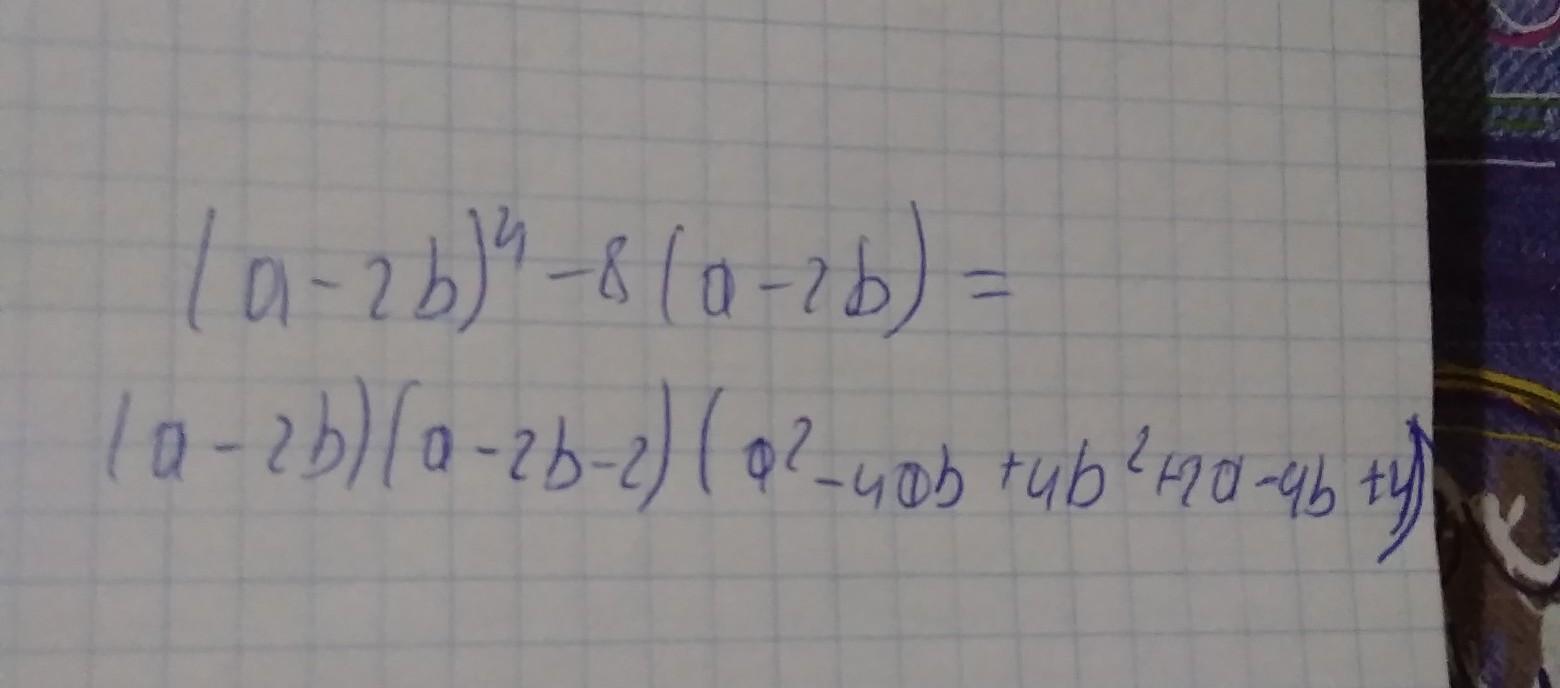 (a-2b)⁴-8(a-2b)=
(a-2b)(a-2b-2)(a²-4ab+4b²+2a-4b+4)